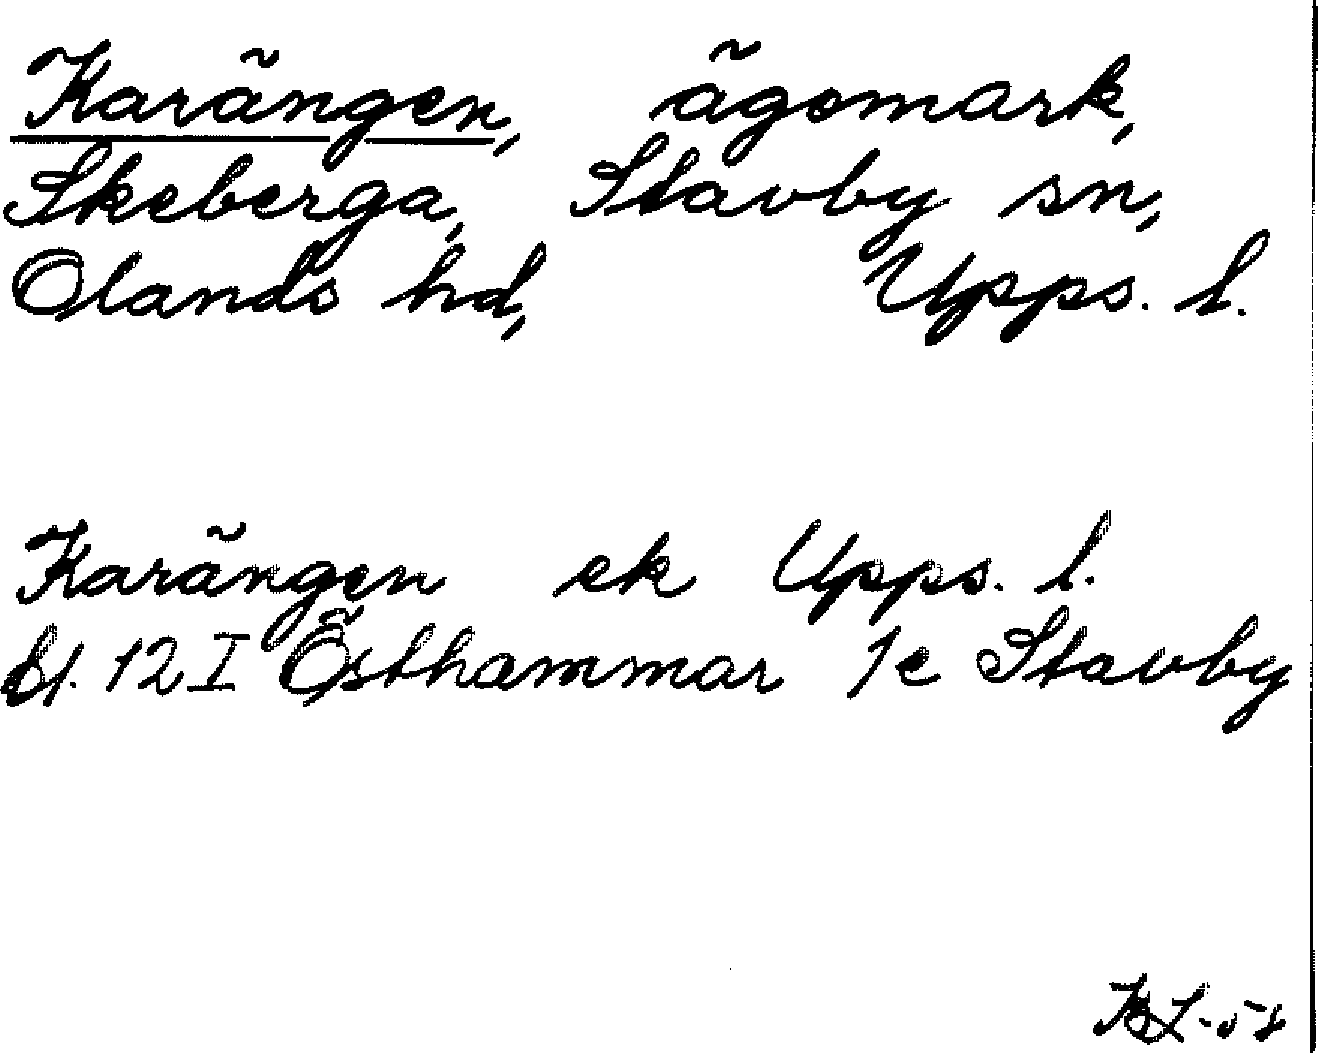 Karängen, ägomark,
Skeberga, Stavby sn,
Olands hd, Upps. l.
Karängen ek Upps. l.
bl. 12 I Östhammar 1e Stavby